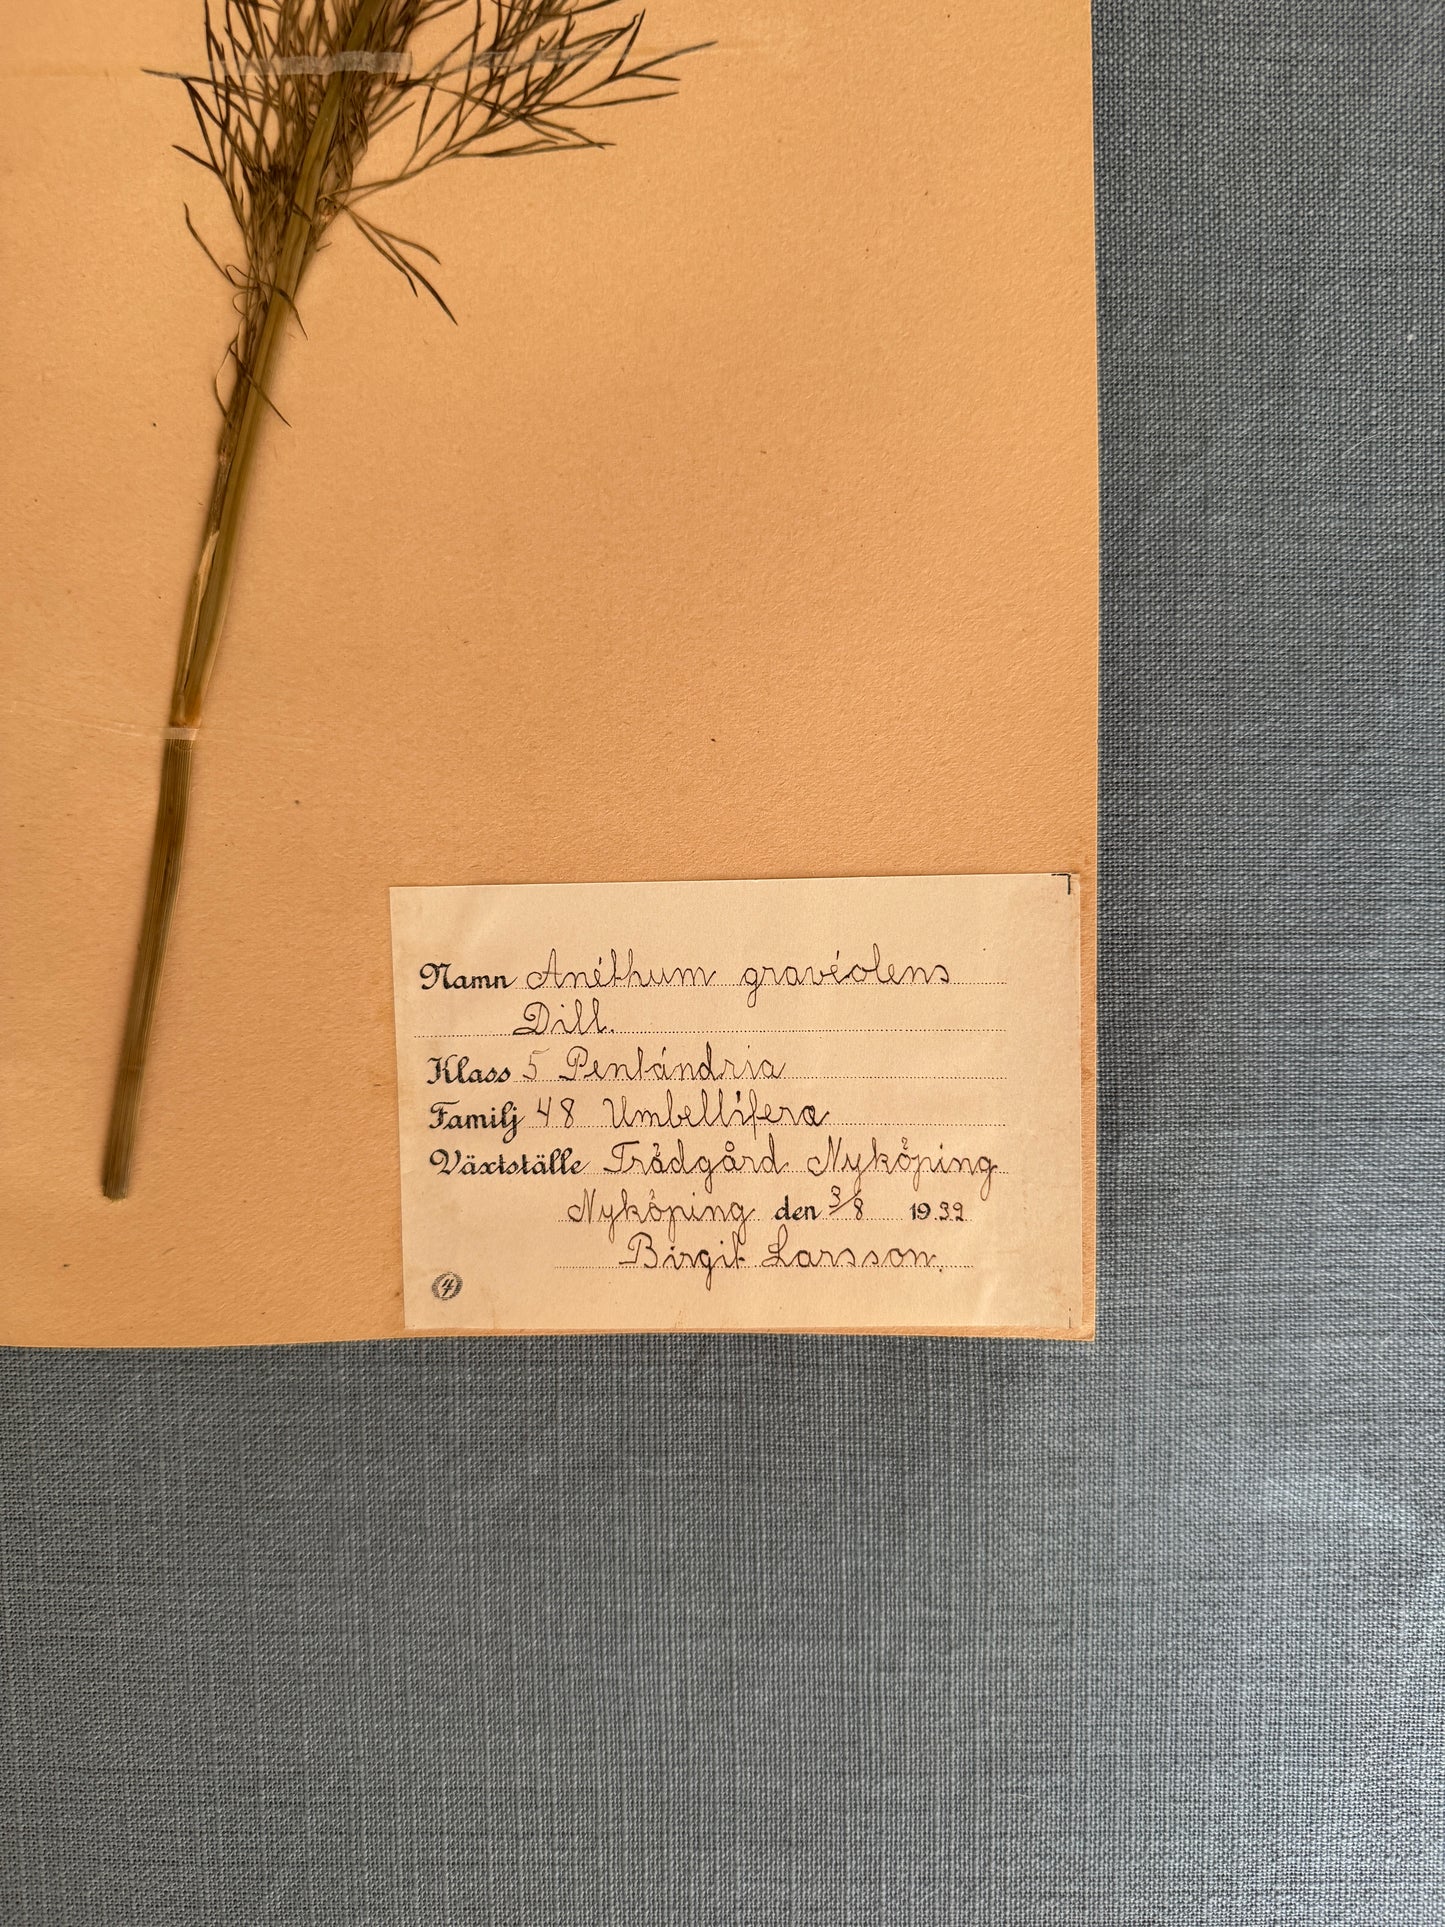 Namn Anéthum gravéolens
Dill.
Klass 5 Pentándria
Familj 48 Umbelliferæ
Växtställe Trädgård Nyköping
Nyköping den 3/8 1939
Birgit Larsson.
4